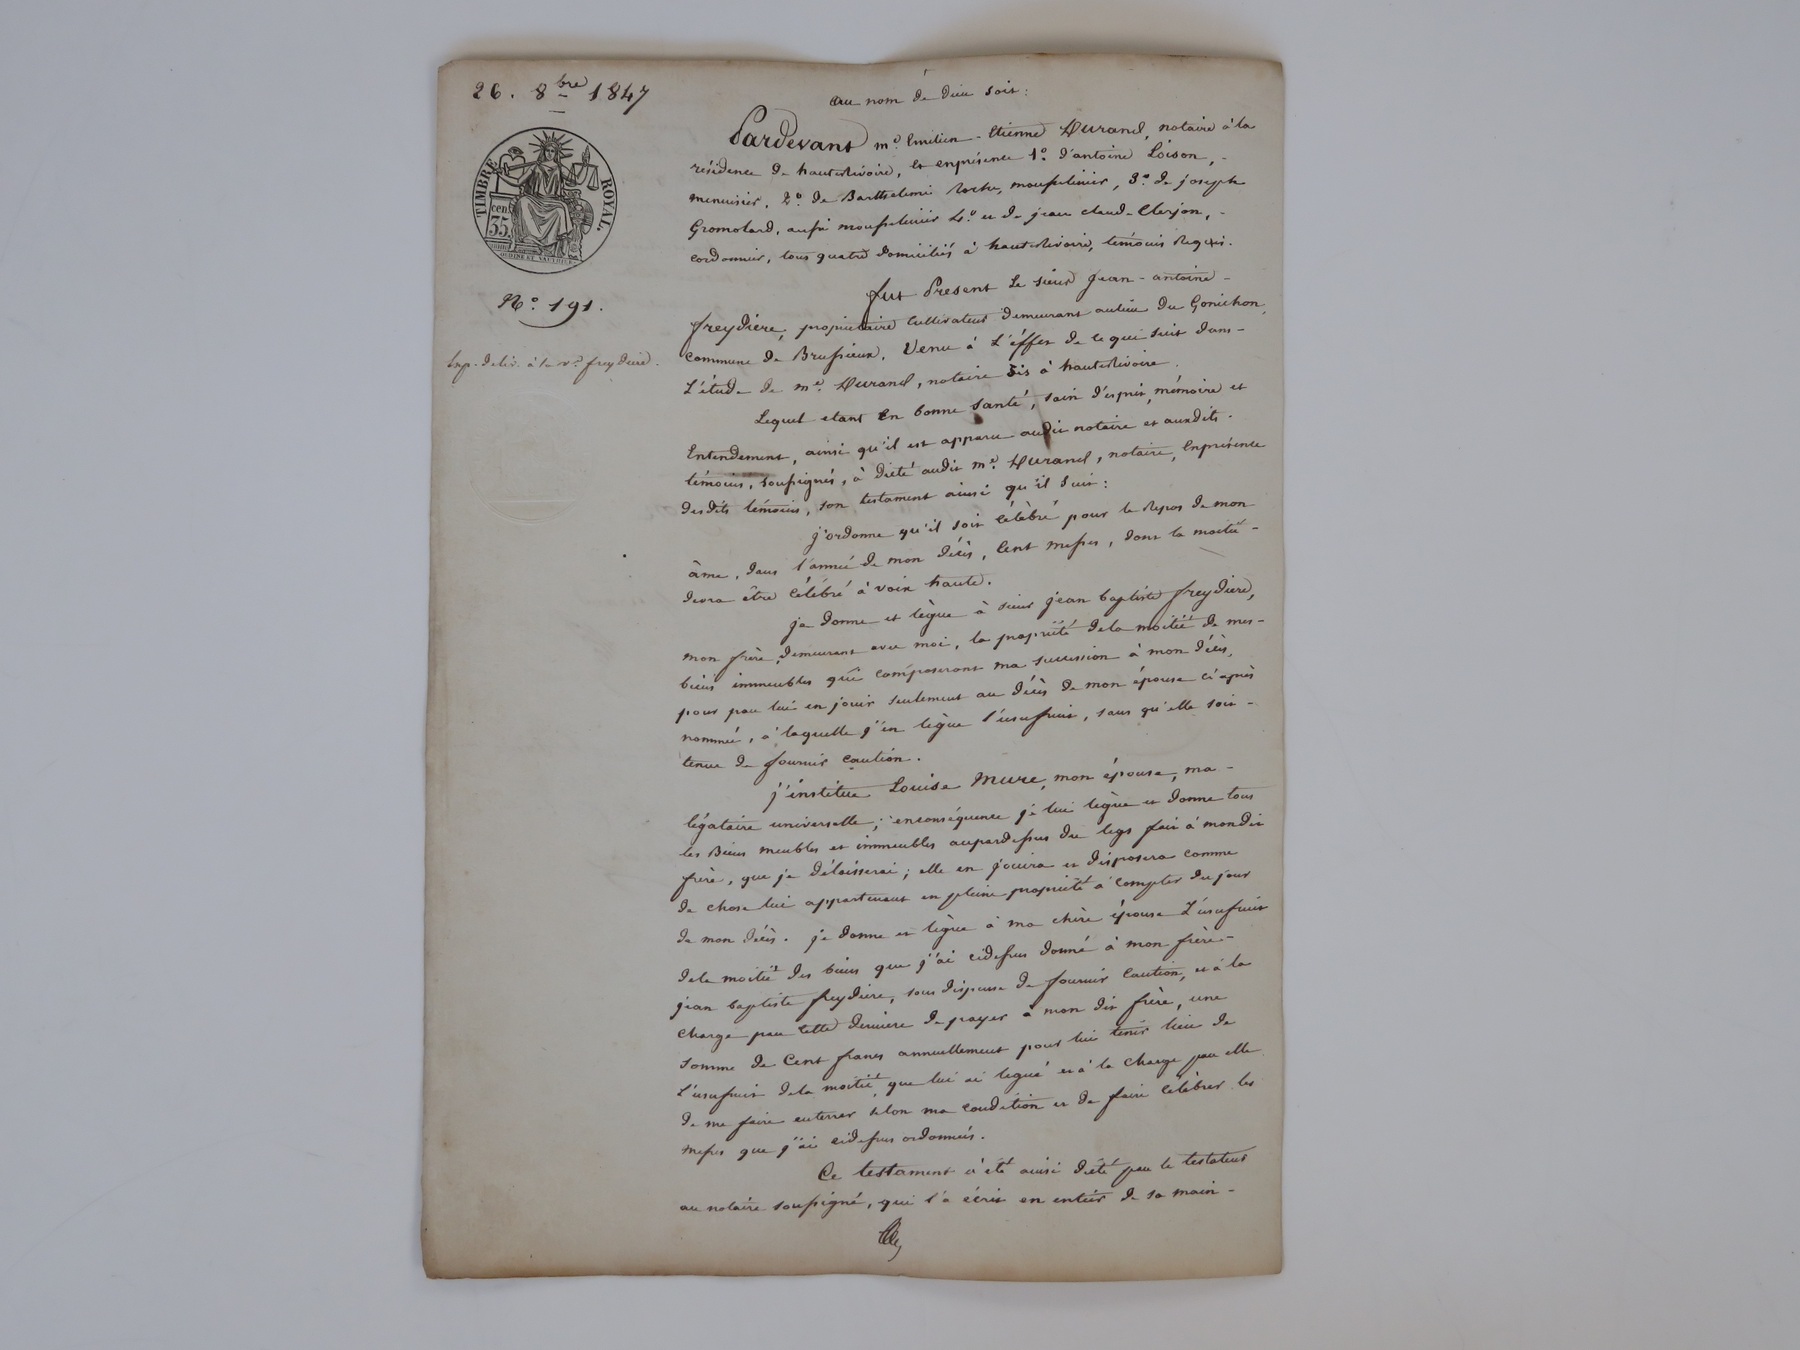 26. 8bre 1847
TIMBRE ROYAL.
cen. 35.
N° 191.
Exp. deliv. à la ve freydiere.
au nom de dieu soit:
Pardevant me Emilien-Etienne Durand, notaire à la
résidence de hauterivoire, et enprésence 1° d'antoine Loison,-
menuisier, 2° de Barthelemi Roche, mousselinier, 3° de joseph
Gromolard, aussi mousselinier 4° et de jean claud-Clerjon,-
cordonnier, tous quatre domiciliés à hauterivoire, témoins Requis.
fut Present Le sieur Jean-antoine-
freydiere, propriétaire Cultivateur demeurant aulieu du Gonichon,
commune de Brussieux, Venu à L'éffet de ce qui suit dans-
L'étude de me Durand, notaire sis à hauterivoire.
Lequel etant En bonne santé, sain d'esprit, mémoire et
Entendement, ainsi qu'il est apparu audit notaire et auxdits-
témoins, soussignés, à dicté audit me Durand, notaire, Enprésence
desdits témoins, son testament ainsi qu'il suit:
j'ordonne qu'il soit célébré pour le Repos de mon
âme, dans l'année de mon décès, Cent messes, dont la moitié-
devra être célébré à voix haute.
je donne et lègue à sieur jean baptiste freydiere,
mon frère, demeurant avec moi, la propriété dela moitié de mes-
biens immeubles qui composeront ma succession à mon décès,
pour par lui en jouir seulement au décès de mon épouse ci après
nommée, à laquelle j'en lègue l'usufruit, sans qu'elle soit-
tenue de fournir caution.
j'institue Louise Mure, mon épouse, ma-
légataire universelle; enconséquence je lui lègue et donne tous
les Biens meubles et immeubles aupardessus du legs fait à mondit
frère, que je délaisserai; elle en jouira et disposera comme
de chose lui appartenant en pleine propriété à compter du jour
de mon décès. je donne et lègue à ma chère épouse L'usufruit
dela moitié des biens que j'ai cidessus donné à mon frère-
jean baptiste freydiere, sous dispense de fournir caution, et à la
charge par cette derniere de payer à mon dit frère, une
somme de Cent francs annuellement pour lui tenir lieu de
L'usufruit dela moitié que lui ai legué et à la charge par elle
de me faire enterrer selon ma condition et de faire célébrer les
messes que j'ai cidessus ordonnées.
Ce testament a été ainsi dicté par le testateur
au notaire soussigné, qui l'a écrit en entier de sa main-